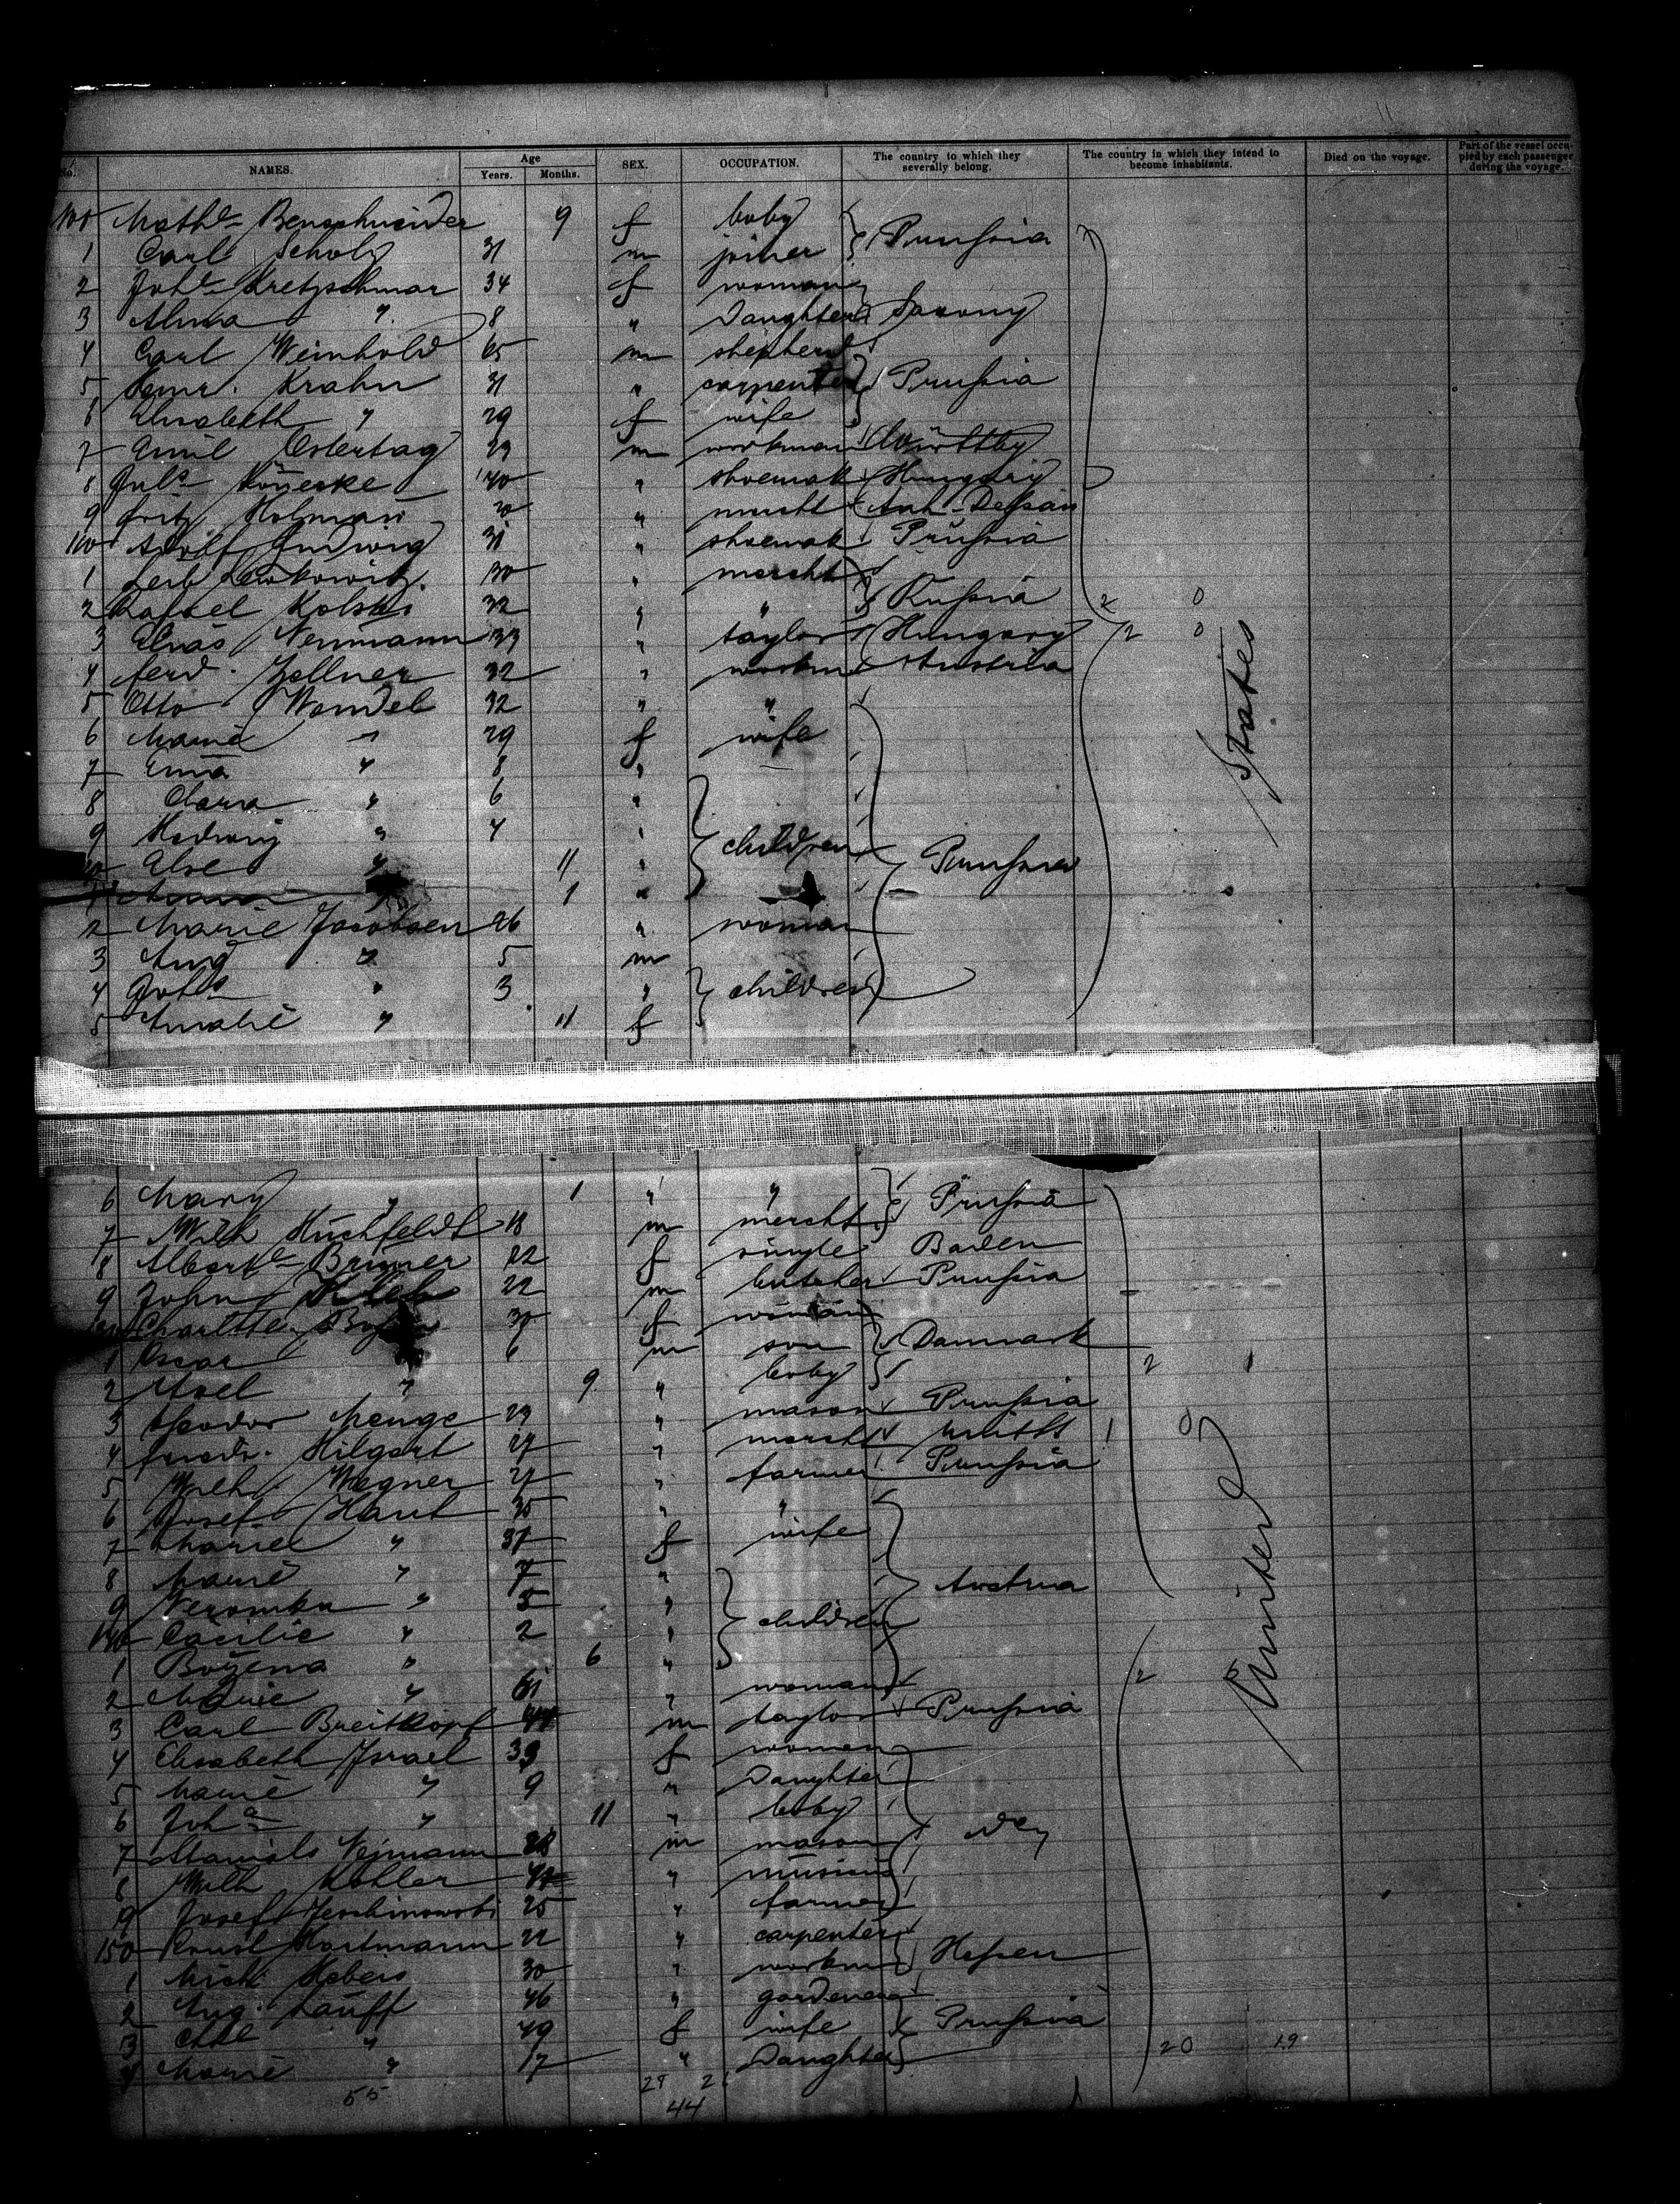 No. NAMES. Age Years. Months. SEX. OCCUPATION. The country to which they severally belong. The country in which they intend to become inhabitants. Died on the voyage. Part of the vessel occupied by each passenger during the voyage.
100 Mathe Benschneider 9 f baby
1 Carl Scholz 31 m joiner Prussia
2 Johe Kretzschmar 34 f woman
3 Alma " 8 " Daughter Saxony
4 Carl Weinhold 65 m shepherd
5 Krahn 31 " carpenter Prussia
6 Elisabeth " 29 f wife
7 Emil Ostertag 29 m workman
8 40 " shoemak Hungary
9 Fritz 20 " Anh-Dessau
110 Adolf Ludwig 31 " shoemak Prussia
1 Leib Lewkowitz 30 " mercht
2 Rafael Kolski 32 " " Russia 2 0
3 Elias Neumann 33 " taylor Hungary 2 0
4 Ferd. Zellner 32 " workm Austria
5 Otto Wandel 32 " "
States
6 Marie " 29 f wife
7 Erna " 8 "
8 Clara " 6 "
9 Hedwig " 4 "
children
20 Else " 11 " Prussia
1 1 "
2 Marie Jacobsen 26 " woman
3 Aug " 5 m
4 " 3 " children
5 Amalie " 11 f
6 Mary " 1 " " Prussia
7 Wilh Huchfeldt 18 m mercht
8 Alberte Brimer 22 f single Baden
9 John 22 m butcher Prussia
Charlotte 30 f woman
1 Oscar 6 m son Danmark
2 Axel " 9 " baby 2 1
3 Menge 29 " mason Prussia
4 Friedr. Hilgert 27 " mercht 1 0
5 Wilh Wegner 27 " farmer Prussia
6 Josef 35 " "
7 Marie " 37 f wife
8 Marie " 7 "
Austria
9 Veronika " 5 "
children
United
140 Cäcilie " 2 "
1 Bozena " 6 "
2 Marie " 61 " woman 2
3 Carl Breitkopf 44 m taylor Prussia
4 Elisabeth Israel 39 f women
5 Marie " 9 " Daughter
6 Joha " 11 " baby
7 Nejmann 28 m mason
8 Wilh Kohler 47 "
9 Josef 25 " farmer
150 Ernst Hartmann 22 " carpenter
1 30 " workm Hessen
2 Aug. Lauff 46 " gardener
3 " 49 f wife Prussia
4 Marie " 17 " Daughter 20 19
55
44